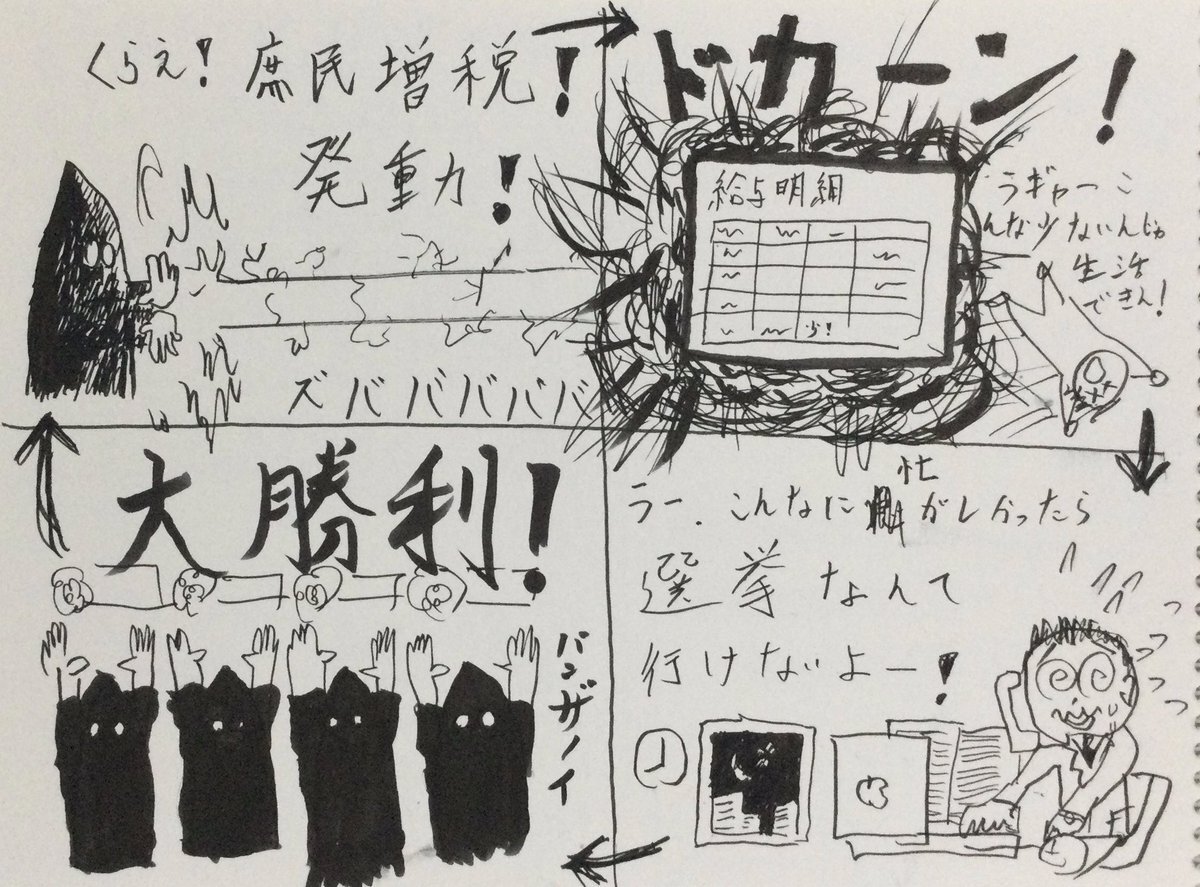 くらえ！庶民増税！
発動力！
ズババババババ
ドカーン！
給与明細
うギャーこ
んな少ないんじゃ
生活
できん！
うー、こんなに忙がしかったら
選挙なんて
行けないよー！
大勝利！
バンザイ